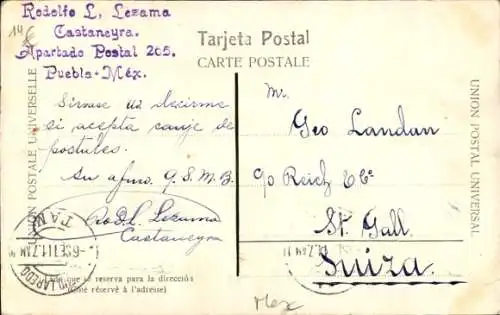 14
Rodolfo L. Lezama
Castaneyra.
Apartado Postal 205.
Puebla-Méx.
Tarjeta Postal
CARTE POSTALE
UNION POSTALE UNIVERSELLE
UNION POSTAL UNIVERSAL
Sirvase Ud decirme
si acepta canje de
postales.
Su afmo. Q.S.M.B.
Rod. L. Lezama
Castaneyra
Mr.
Geo Landau
c/o Reich & Co
St. Gall.
Suiza.
TAM
6 SET 11 7 AM
LAREDO
Lado que se reserva para la dirección
(Côté réservé à l'adresse)
Mex